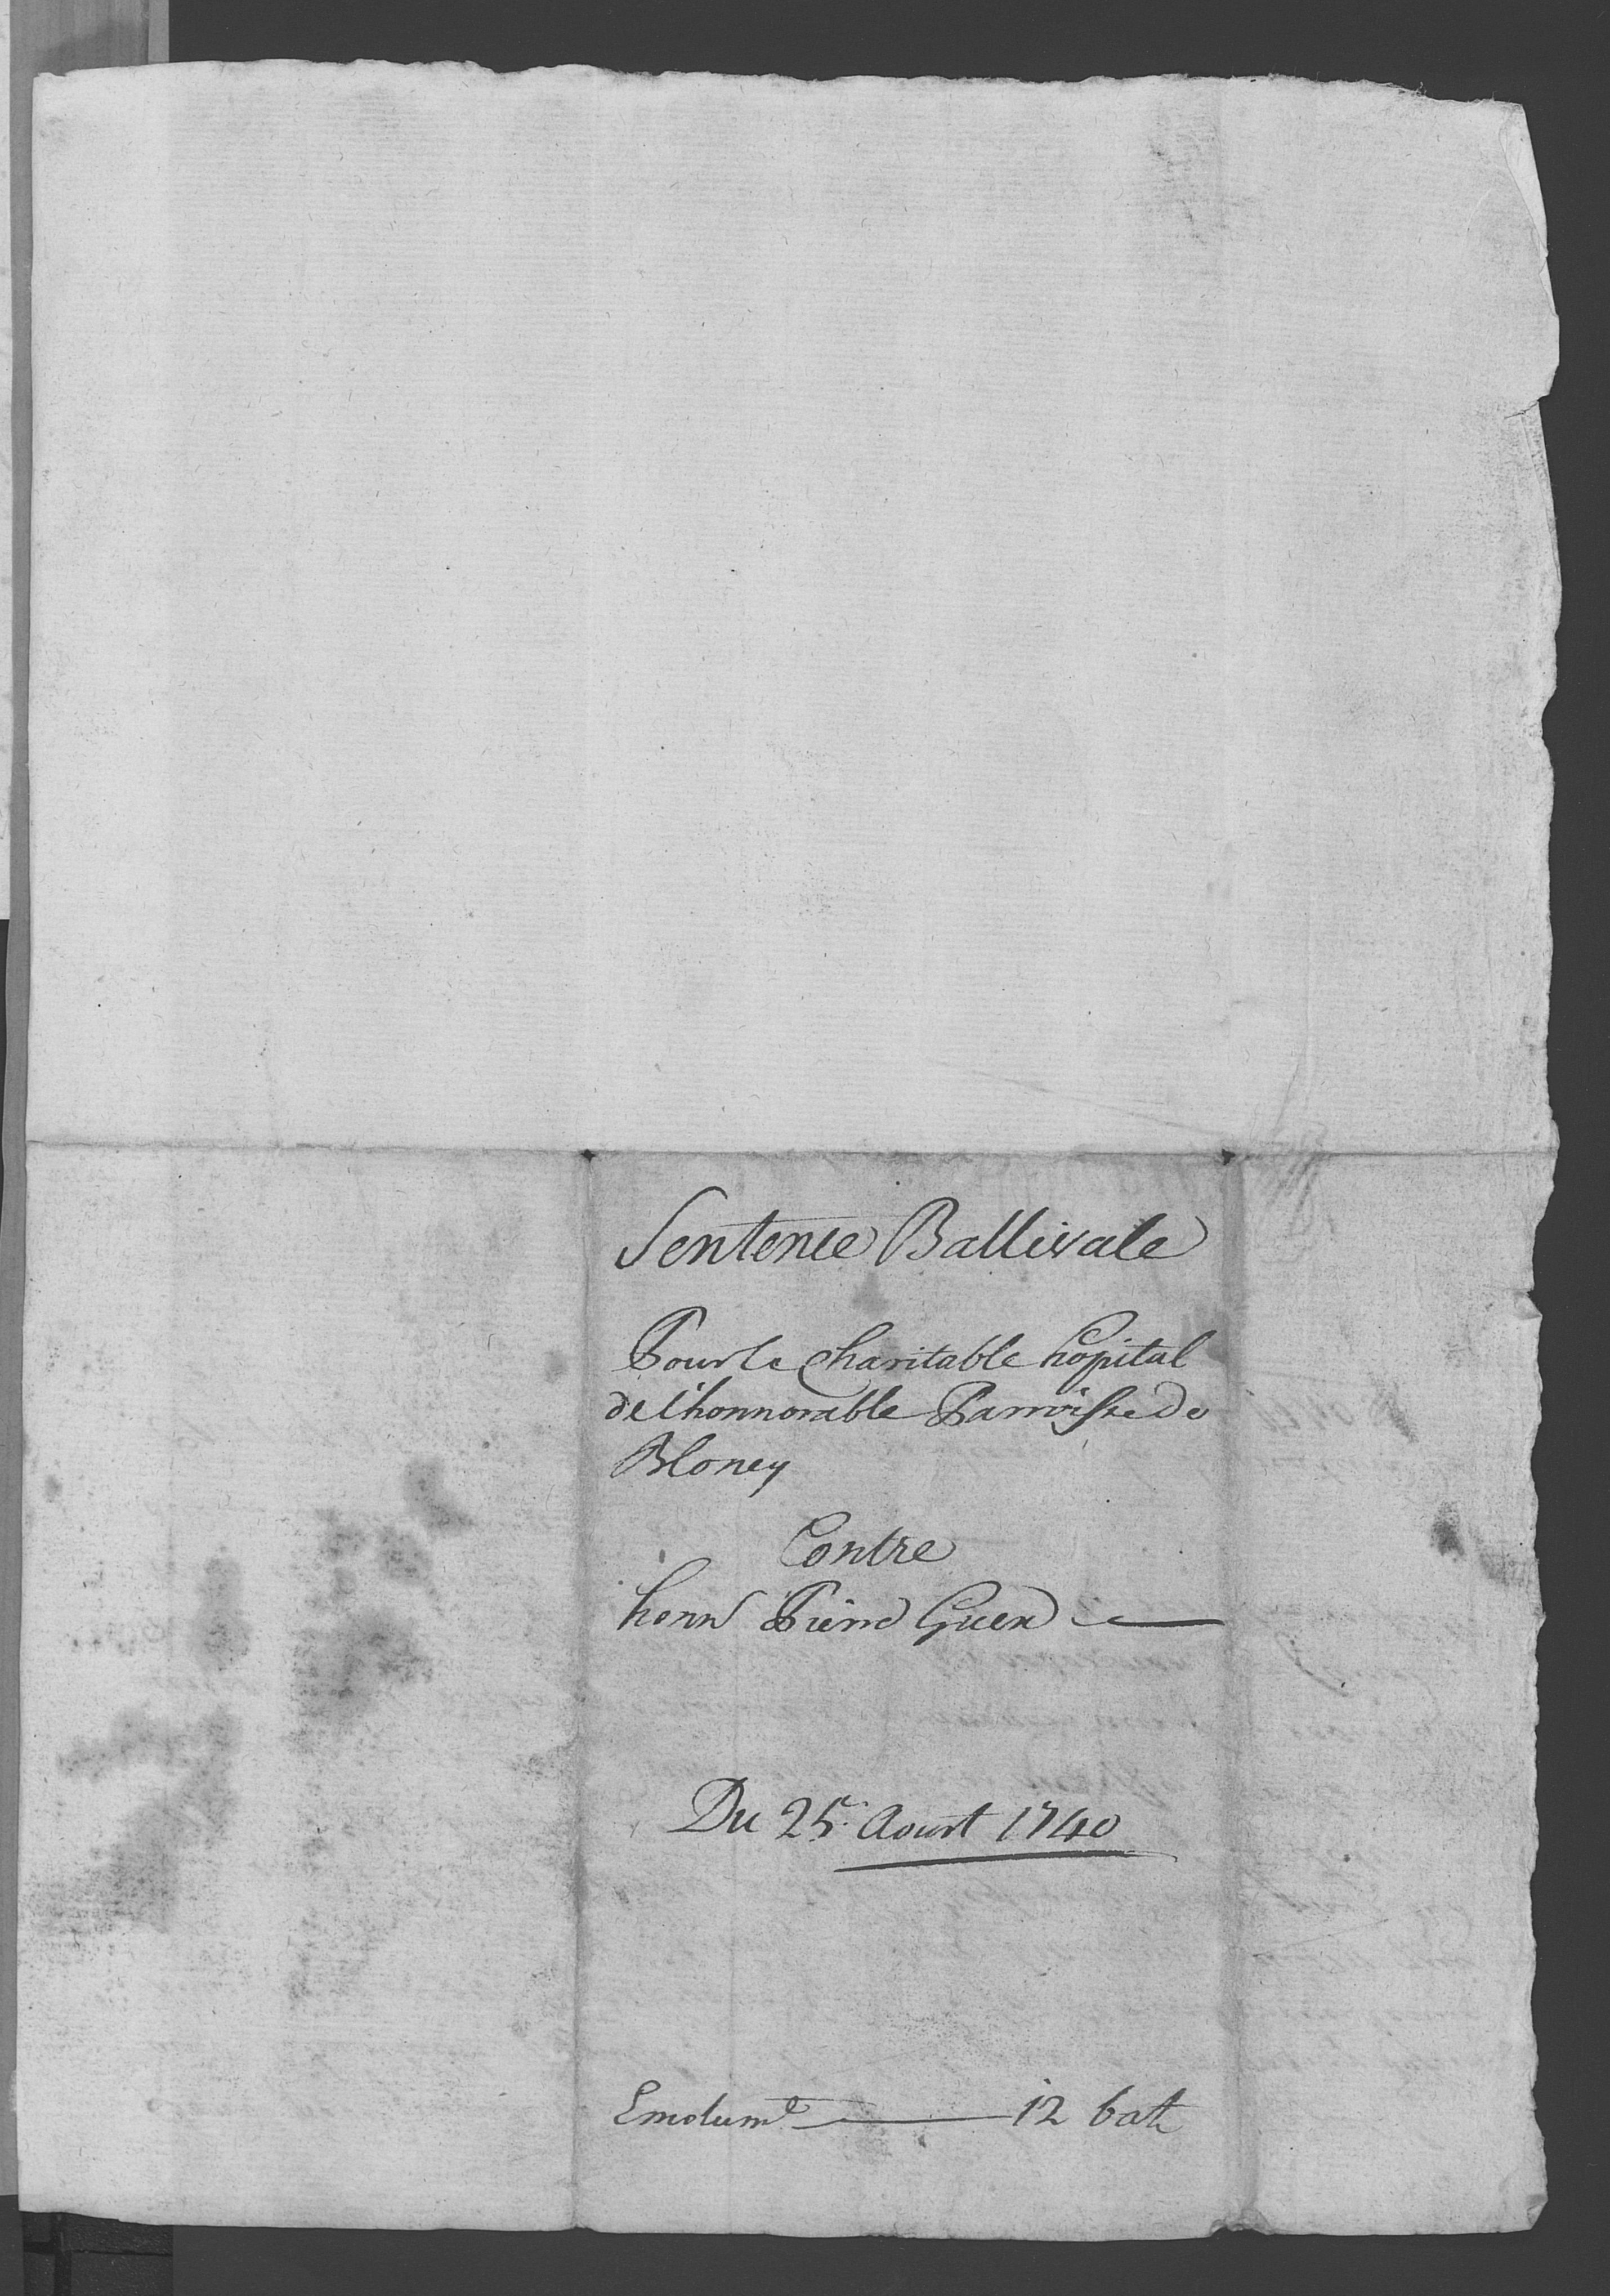 Sentence Ballivale
Pour le charitable hôpital
de l'honnorable Parroisse De
Bloney
Contre
honn Pierre Guex
Du 25e: Aoust 1740
Emolumt 12 batz